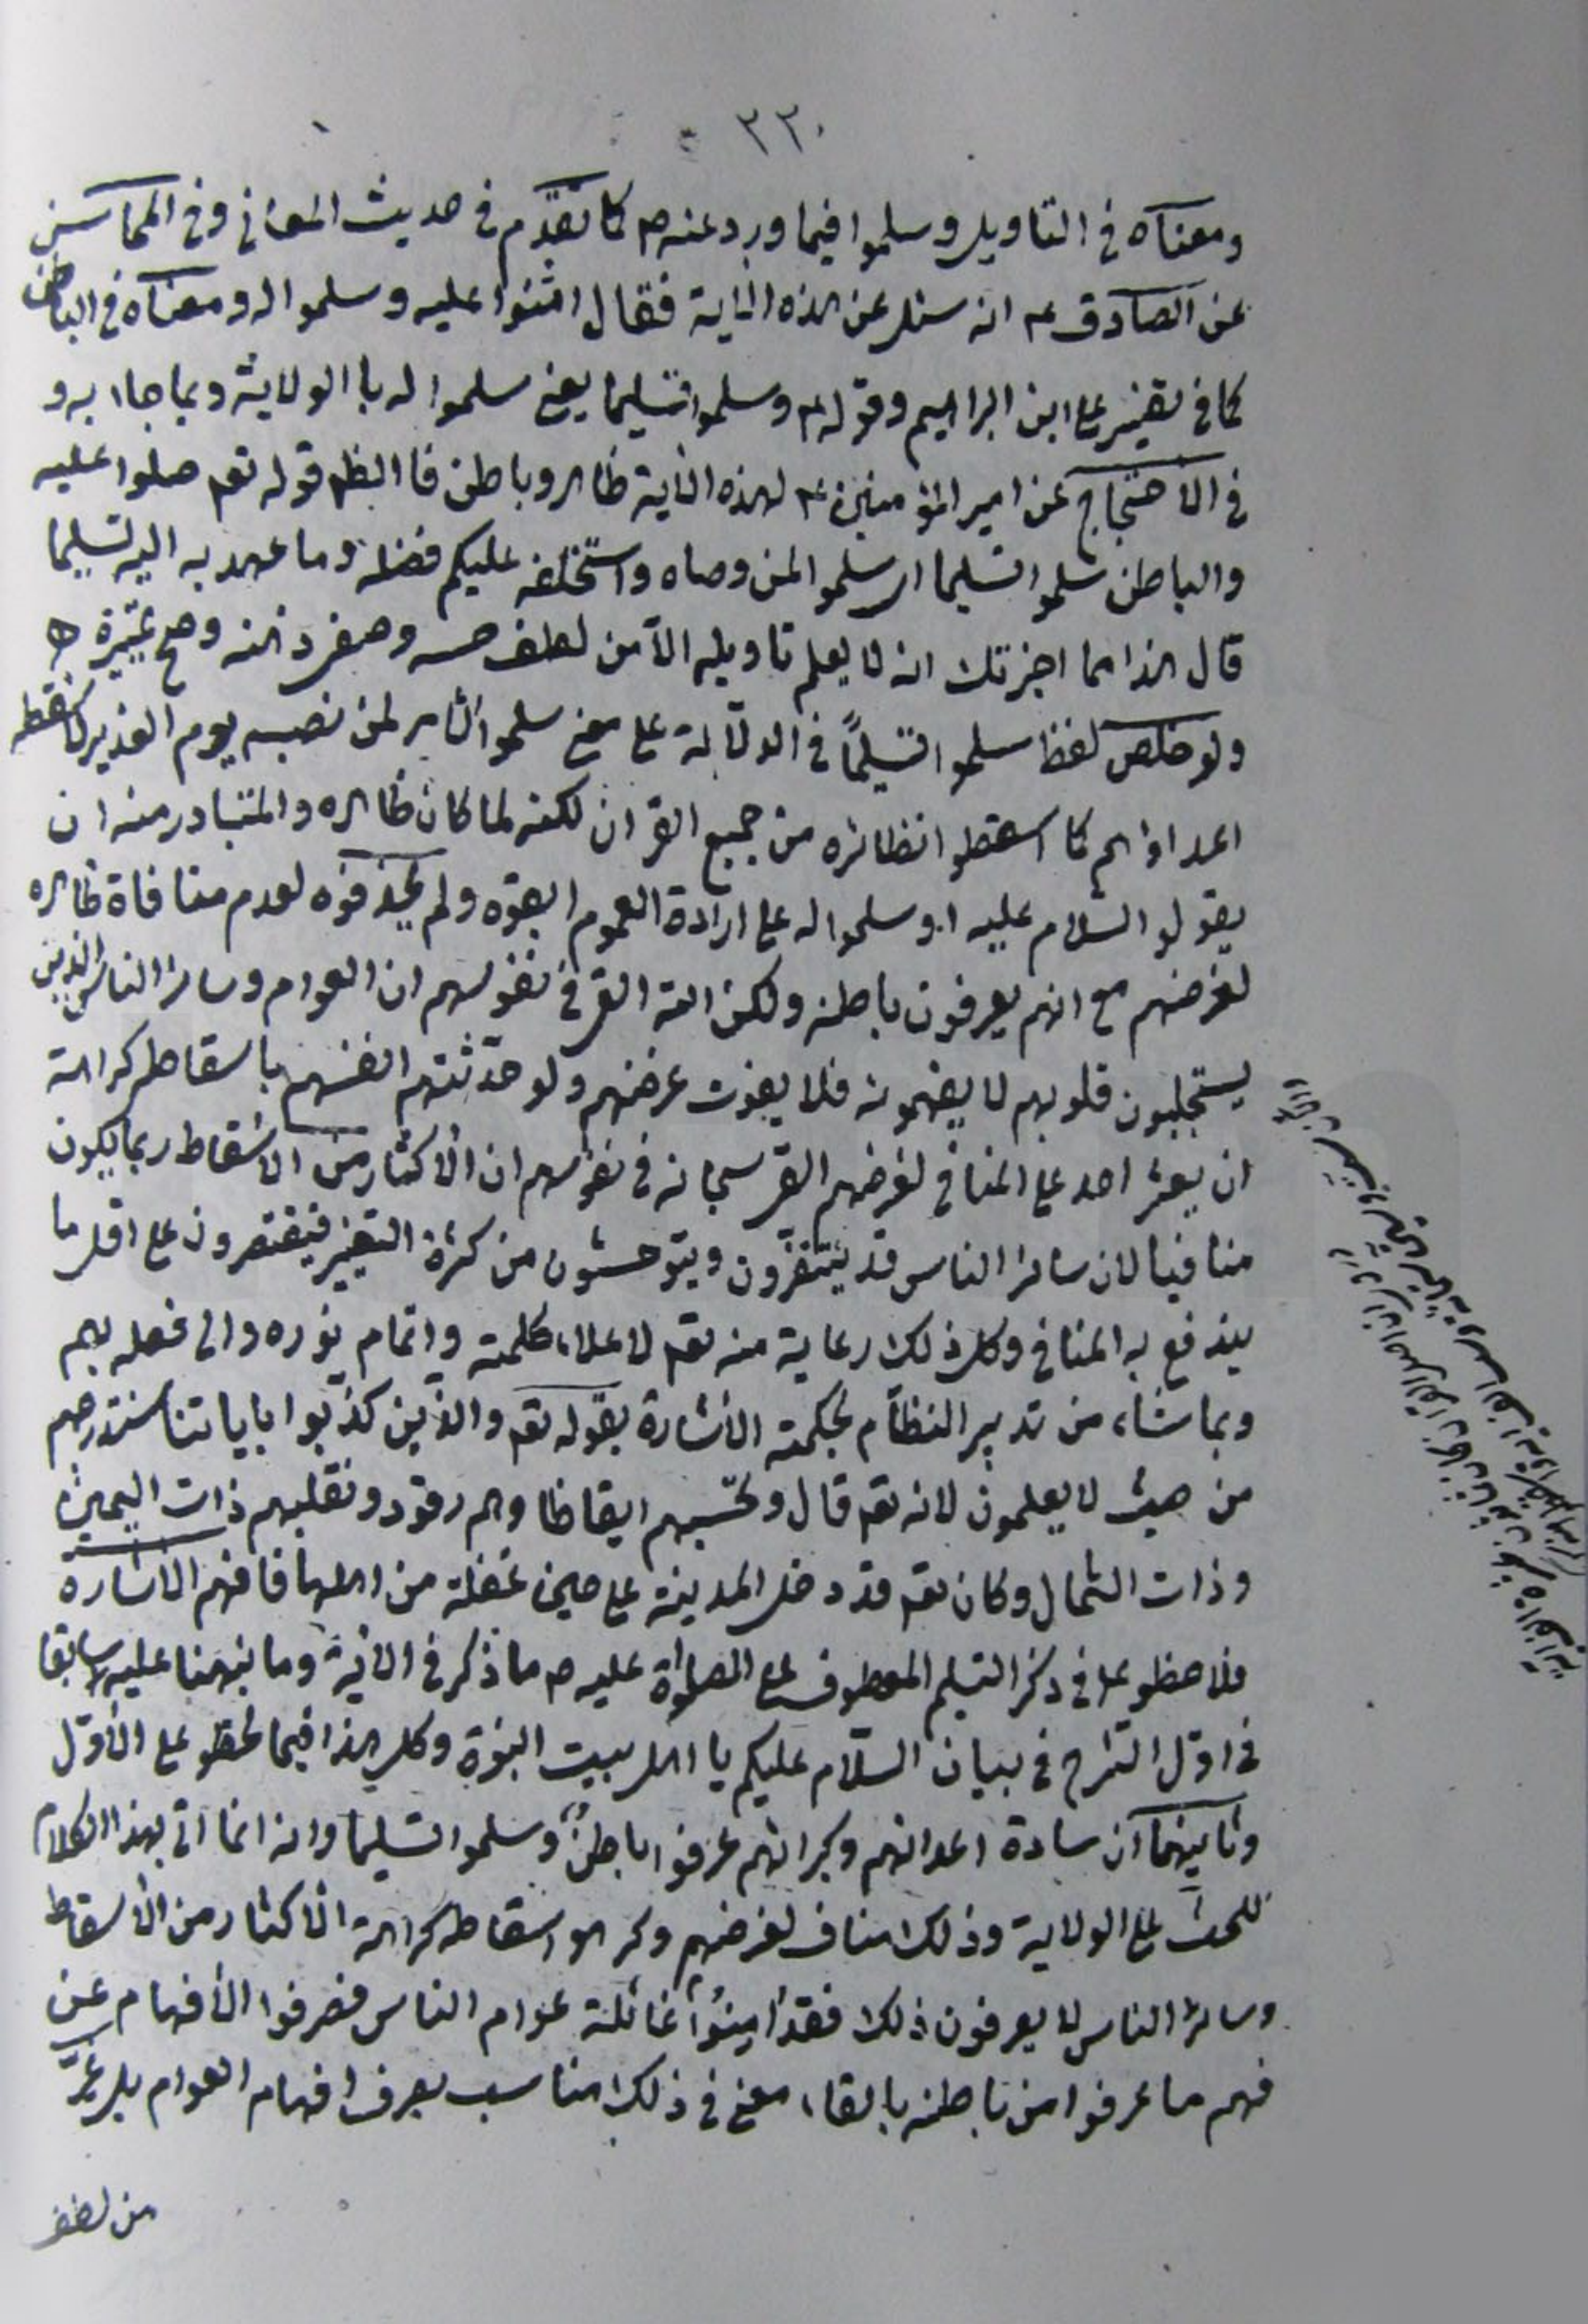 ٣٣٠
ومعناه في التاويل وسلموا فيما ورد عنه ص كما تقدّم في حديث المعاني وفي المحاسن
عن الصادق ع انه سئل عن هذه الاية فقال اثنوا عليه وسلموا له ومعناه في الباطن
كما في تفسير علي ابن ابراهيم وقوله ع وسلموا تسليما يعني سلموا له با الولاية وبما جاء به و
في الاحتجاج عن امير المؤمنين ع لهذه الاية ظاهر وباطن فا الظهر قوله تعم صلوا عليه
والباطن سلموا تسليما اي سلموا لمن وصاه واستخلفه عليكم فضله وما عهد به اليه تسليما
قال هذا مما اخبرتك انه لا يعلم تاويله الا من لطف حسه وصفى ذهنه وصح تمييزه
ولو خلص لفظ سلموا تسليماً في الدلالة على معنى سلموا الامر لمن نصبه يوم الغدير لاسقطه
اعداؤهم كما اسقطوا نظائره من جميع القران لكنه لما كان ظاهره والمتبادر منه ان
يقولو السلام عليه او سلموا له على ارادة العموم ابقوه ولم يحذفوه لعدم منافاة ظاهره
لغرضهم مع انهم يعرفون باطنه ولكن الله القى في نفوسهم ان العوام وسائر الناس الذين
يستجلبون قلوبهم لا يفهمونه فلا يفوت غرضهم ولو حدّثتهم انفسهم باسقاطه كراهة
ان يعثر احد على المنافي لغرضهم القى سبحانه في نفوسهم ان الاكثار من الاسقاط ربما يكون
منافيا لان سائر الناس قد يتنفّرون ويتوحشون من كثرة التغيير فيقتصرون على اقل ما
يندفع به المنافي وكل ذلك رعاية منه تعم لاعلاء كلمته واتمام نوره والى فعله بهم
وبما شاء من تدبير النظام بحكمته الاشارة بقوله تعم والذين كذبوا باياتنا سنستدرجهم
من حيث لا يعلمون لانه تعم قال وتحسبهم ايقاظا وهم رقود ونقلبهم ذات اليمين
وذات الشمال وكان تعم قد دخل المدينة على حين غفلة من اهلها فافهم الاشارة
فلاحظو على في ذكر التسليم المعطوف على الصلواة عليه ص ما ذكر في الاية وما نبهنا عليه سابقا
في اوّل الشرح في بيان السلام عليكم يا اهل بيت النبوة وكل هذا فيما لحقو على الاوّل
وثانيهما ان سادة اعدائهم وكبرائهم عرفوا باطن وسلموا تسليما وانه انما اتى بهذا الكلام
للحث على الولاية وذلك مناف لغرضهم وكرهوا اسقاطه كراهة الاكثار من الاسقاط
وسائر الناس لا يعرفون ذلك فقد امنوا غائلة عوام الناس فصرفوا الافهام عن
فهم ما عرفوا من باطنه بالقاء معنى في ذلك مناسب يعرف افهام العوام بل غيّر
من لفظ